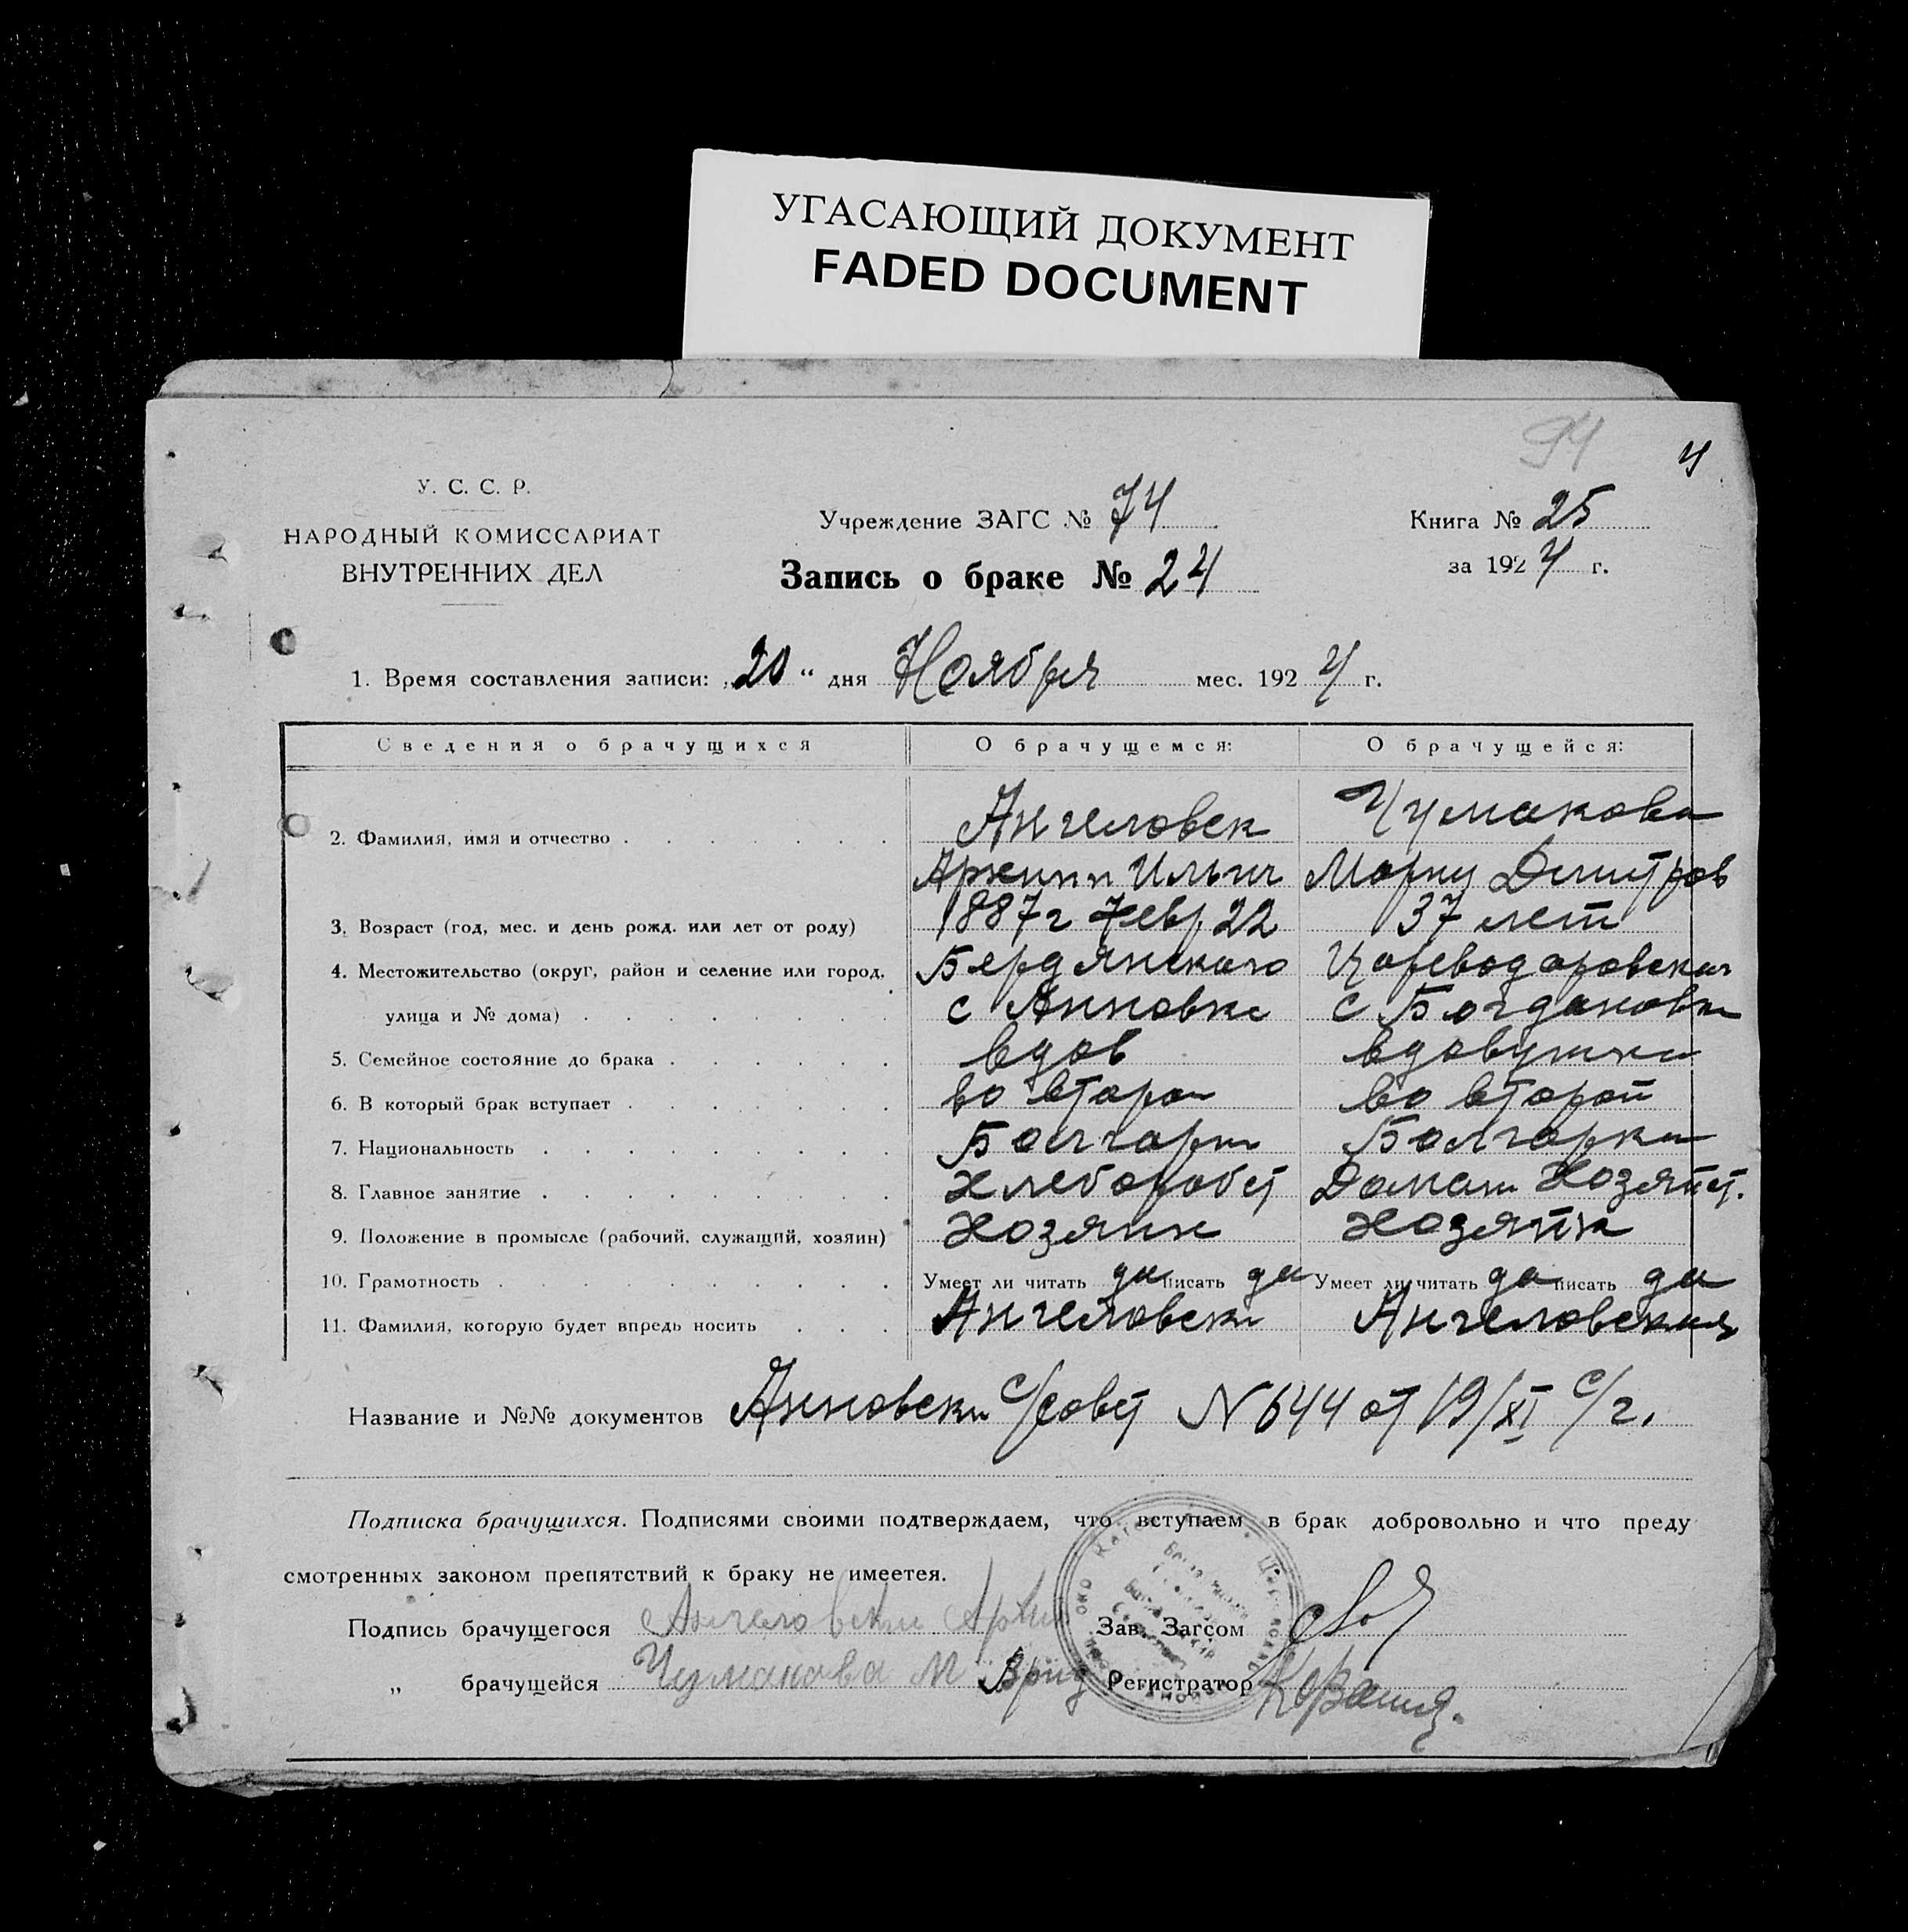 УГАСАЮЩИЙ ДОКУМЕНТ
FADED DOCUMENT
94
4
У. С. С. Р.
НАРОДНЫЙ КОМИССАРИАТ
ВНУТРЕННИХ ДЕЛ
Учреждение ЗАГС № 74
Запись о браке № 24
Книга № 25
за 1924 г.
1. Время составления записи: „20“ дня Ноября мес. 1924 г.
Сведения о брачущихся О брачущемся: О брачущейся:
2. Фамилия, имя и отчество Ангеловск Чумакова
Архипп Ильич Марку Дмитров
3. Возраст (год, мес. и день рожд. или лет от роду) 1887 г Февр 22 37 лет
4. Местожительство (округ, район и селение или город, Бердянского Цареводаровская
улица и № дома) с Анновке с Богдановка
5. Семейное состояние до брака вдов вдовушка
6. В который брак вступает во второй во второй
7. Национальность Болгарин Болгарка
8. Главное занятие Хлеборобст Домашн Хозяйст.
9. Положение в промысле (рабочий, служащий, хозяин) Хозяин Хозяйка
10. Грамотность Умеет ли читать да писать да Умеет ли читать да писать да
11. Фамилия, которую будет впредь носить Ангеловски Ангеловская
Название и №№ документов Анновски с/совет N 644 от 19/XI с/г.
Подписка брачущихся. Подписями своими подтверждаем, что вступаем в брак добровольно и что преду
смотренных законом препятствий к браку не имеется.
Подпись брачущегося Ангеловски Архип Зав. Загсом
„ брачущейся Чумакова М Врид Регистратор